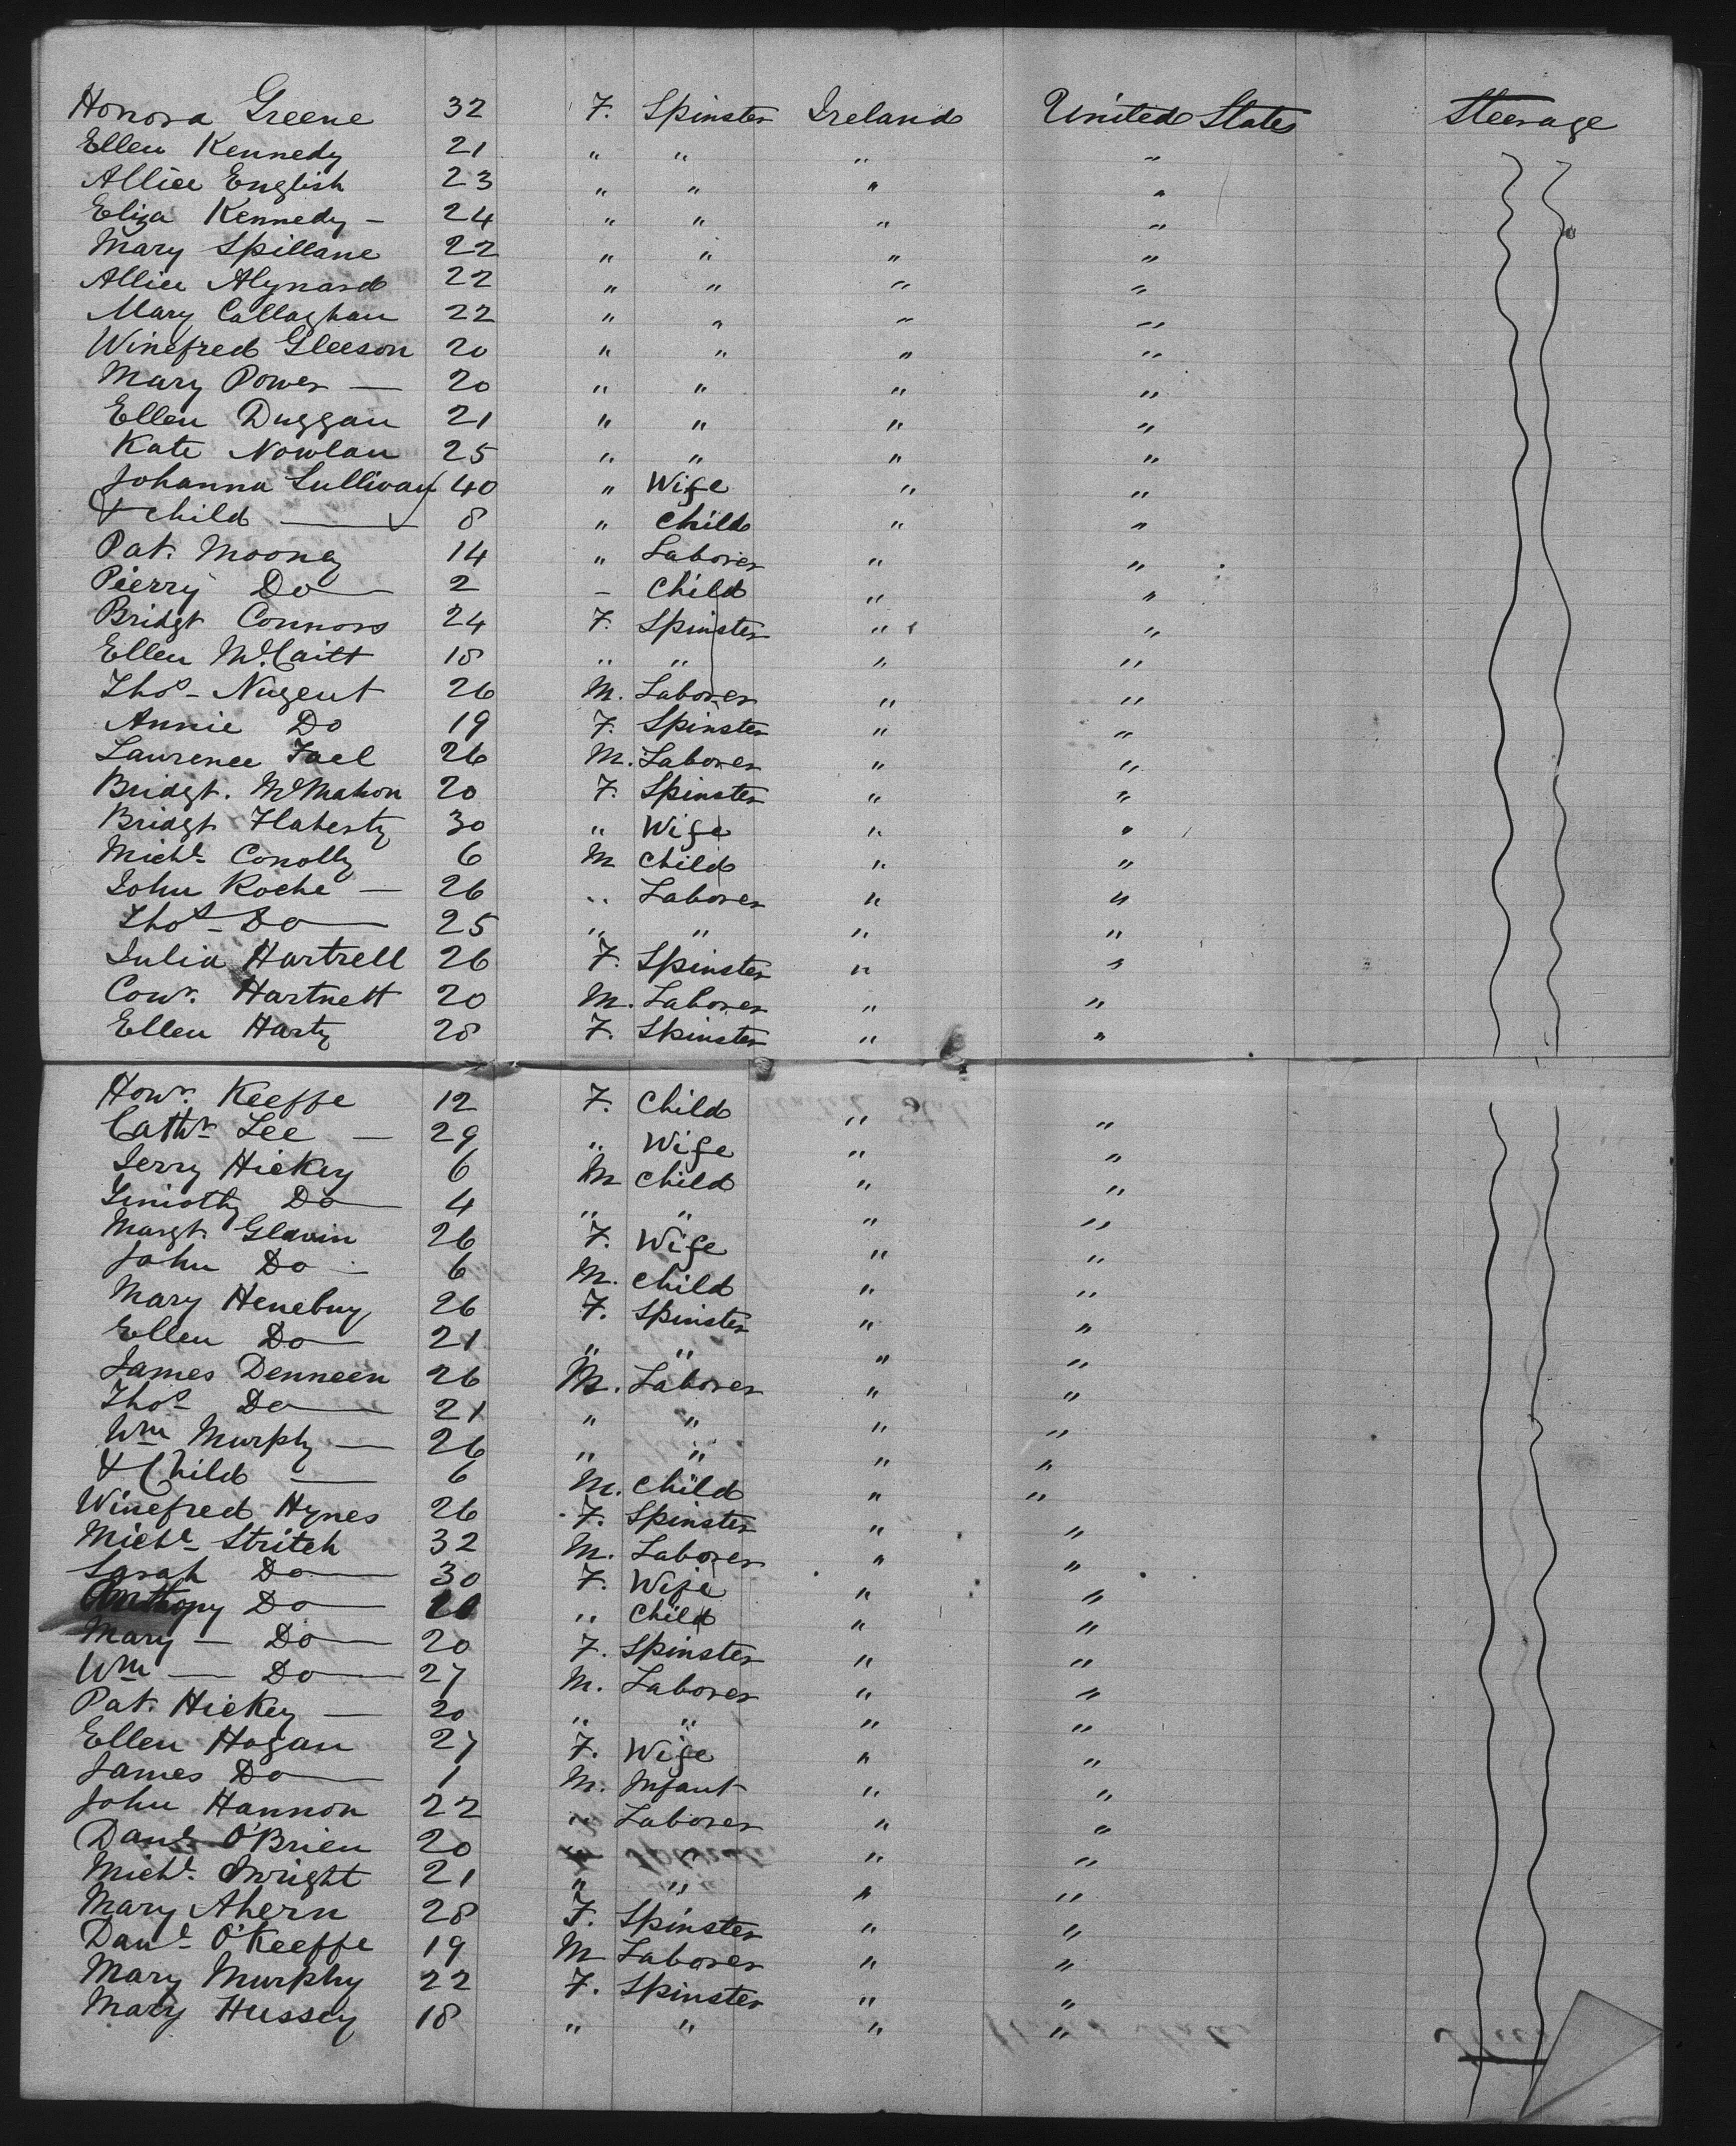 Honora Greene 32 F. Spinster Ireland United States Steerage
Ellen Kennedy 21 " " " "
Allice English 23 " " " "
Eliza Kennedy – 24 " " " "
Mary Spillane 22 " " " "
Allice Alynard 22 " " " "
Mary Callaghan 22 " " " "
Winefred Gleeson 20 " " " "
Mary Power — 20 " " " "
Ellen Duggan 21 " " " "
Kate Nowlan 25 " " " "
Johanna Sullivan 40 " Wife " "
& child — 8 " Child " "
Pat. Mooney 14 " Laborer " "
Pierry Do — 2 – Child " "
Bridgt Connors 24 F. Spinster " "
Ellen McCaitt 18 " " " "
Thos Nugent 26 M. Laborer " "
Annie Do 19 F. Spinster " "
Laurence Fael 26 M. Laborer " "
Bridgt. McMahon 20 F. Spinster " "
Bridgt Flaherty 30 " Wife " "
Michl Conolly 6 M Child " "
John Roche — 26 " Laborer " "
Thos Do — 25 " " " "
Julia Hartrell 26 F. Spinster " "
Conr. Hartnett 20 M. Laborer " "
Ellen Harty 28 F. Spinster " "
Honr. Keeffe 12 F. Child " "
Cathr Lee — 29 " Wife " "
Jerry Hickey 6 M Child " "
Timothy Do — 4 " " " "
Margt. Glavin 26 F. Wife " "
John Do – 6 M. Child " "
Mary Henebury 26 F. Spinster " "
Ellen Do — 21 " " " "
James Denneen 26 M. Laborer " "
Thos Do — 21 " " " "
Wm Murphy — 26 " " " "
& Child — 6 M. Child " "
Winefred Hynes 26 F. Spinster " "
Michl Stritch 32 M. Laborer " "
Sarah Do — 30 F. Wife " "
Anthony Do — " Child " "
Mary — Do — 20 F. Spinster " "
Wm — Do — 27 M. Laborer " "
Pat. Hickey — 20 " " " "
Ellen Hogan 27 F. Wife " "
James Do — 1 M. Infant " "
John Hannon 22 " Laborer " "
Danl O'Brien 20 " "
Michl. Enright 21 " " " "
Mary Ahern 28 F. Spinster " "
Danl O'Keeffe 19 M Laborer " "
Mary Murphy 22 F. Spinster " "
Mary Hussey 18 " " " "